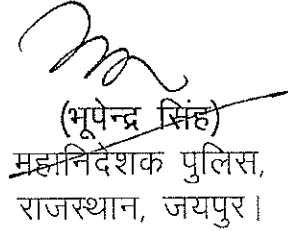 (भूपेन्द्र सिंह)
महानिदेशक पुलिस,
राजस्थान, जयपुर।